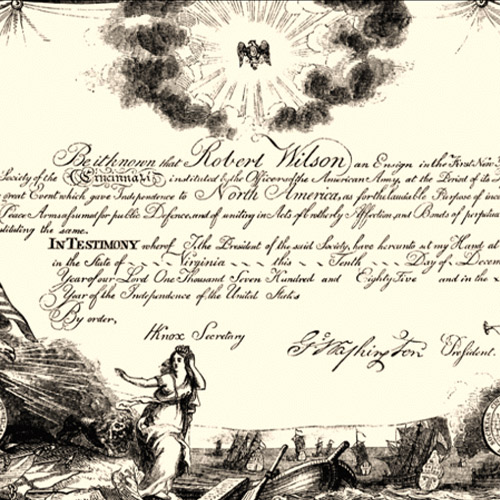 Be it known that Robert Wilson an Ensign in the First New
Society of the Cincinnati instituted by the Officers of the American Army, at the Period of its
great Event which gave Independence to North America, as for the laudable Purpose of
Peace Arms assumed for public Defence, and of uniting in Acts of brotherly Affection, and Bonds of perpetual
the same.
IN TESTIMONY whereof I, the President of the said Society, have hereunto set my Hand at
in the State of Virginia this Tenth Day of Decem
Year of our Lord One Thousand Seven Hundred and Eighty Five and in the
Year of the Independence of the United States
By order,
HKnox Secretary
G. Washington President.